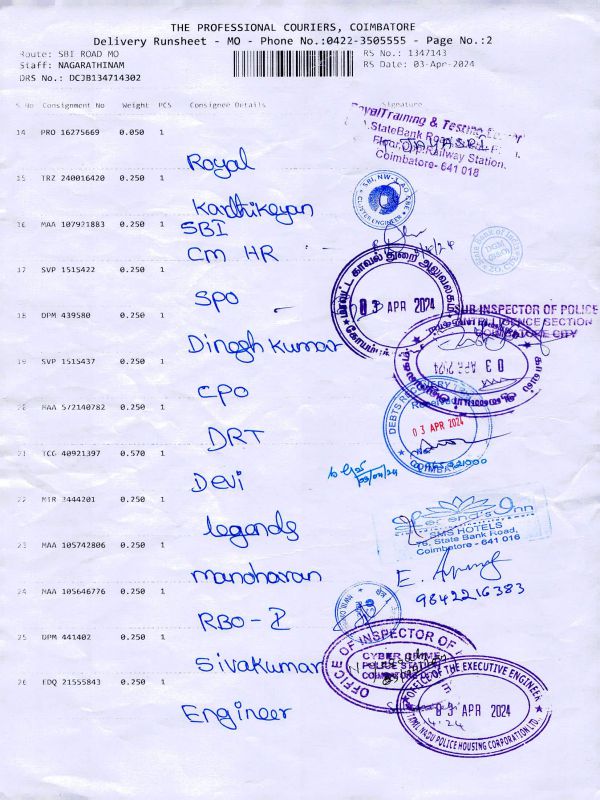 THE PROFESSIONAL COURIERS, COIMBATORE
Delivery Runsheet - MO - Phone No.:0422-3505555 - Page No.:2
Route: SBI ROAD MO RS No.: 1347143
Staff: NAGARATHINAM RS Date: 03-Apr-2024
DRS No.: DCJB134714302
S No Consignment No Weight PCS Consignee Details Signature
14 PRO 16275669 0.050 1
Royal
RoyalTraining & Testing
StateBank Road
Floor, Opp. Railway Station,
Coimbatore- 641 018
15 TRZ 240016420 0.250 1
Karthikeyan
CLUSTER ENGINEER
16 MAA 107921883 0.250 1
SBI
CM HR
17 SVP 1515422 0.250 1
SPO
மாவட்ட காவல் துறை அலுவலகம்
03 APR 2024
18 DPM 439580 0.250 1
Dinesh Kumar
SUB INSPECTOR OF POLICE
INTELLIGENCE SECTION
COIMBATORE CITY
19 SVP 1515437 0.250 1
CPO
03 APR 2024
20 MAA 572140782 0.250 1
DRT
03 APR 2024
21 TCG 40921397 0.570 1
Devi
03/04/24
22 MIR 3444201 0.250 1
legends
Legend's Inn
SMS HOTELS
76, State Bank Road,
Coimbatore - 641 018
23 MAA 105742806 0.250 1
manoharan
9842216383
24 MAA 105646776 0.250 1
RBO - I
25 DPM 441402 0.250 1
Sivakumar
OFFICE OF INSPECTOR OF
CYBER CRIME
POLICE STATION
26 EDQ 21555843 0.250 1
Engineer
OFFICE OF THE EXECUTIVE ENGINEER
03 APR 2024
TAMIL NADU POLICE HOUSING CORPORATION LTD.